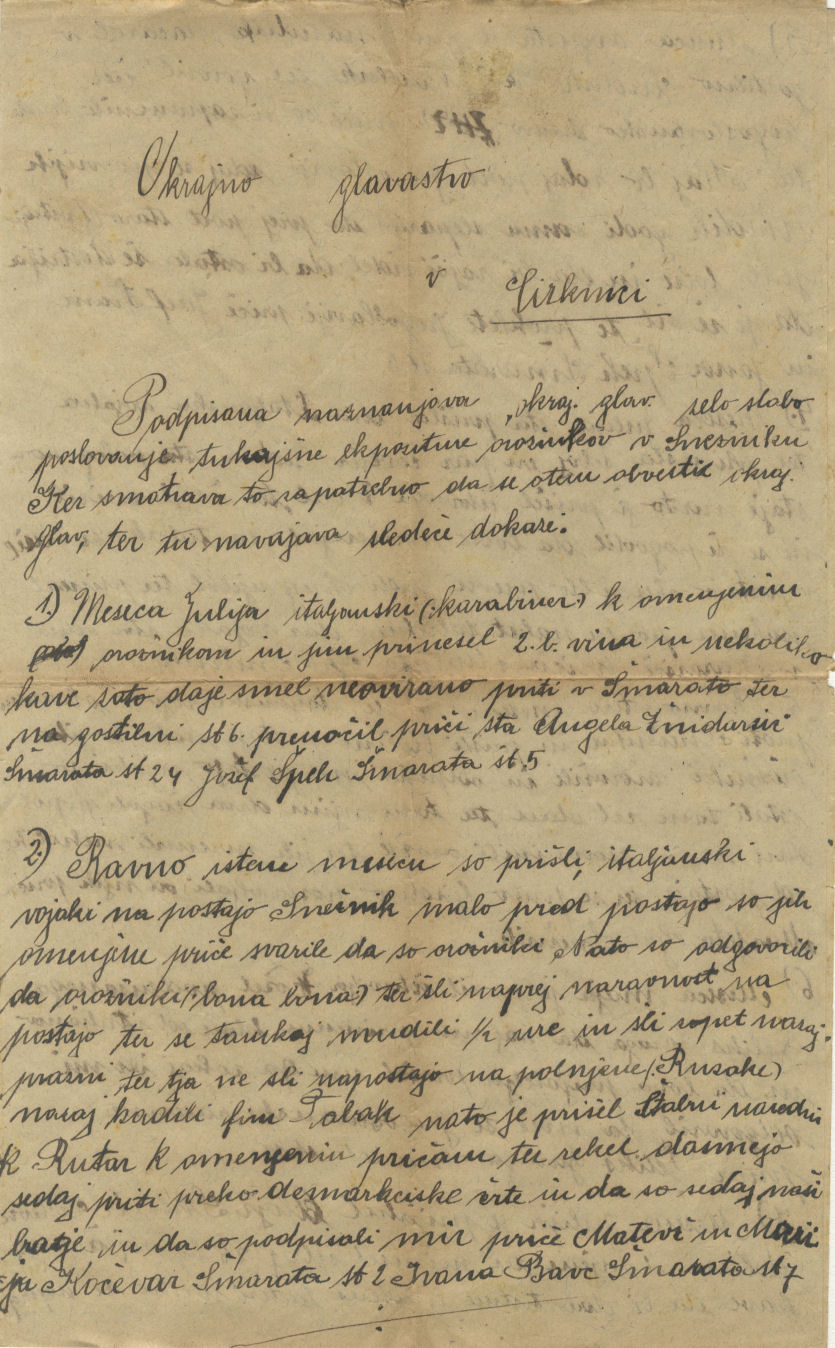 Okrajno glavastvo
v Cirknici
Podpisana naznanjava okraj. glav. zelo slabo
poslovanje tukajšne ekpoziture orožnikov v Snežniku
Ker smatrava to zapotrebno da se otem obvesti okraj.
glav, ter tu navajava sledeče dokaze.
1.) Meseca Julija italjanski (:karabiner) k omenjenim
orožnikom in jim prinesel 2. l. vina in nekoliko
kave zato daje smel neovirano priti v Šmarato ter
na gostilni št 6. prenočil priči sta Angela Žnidaršič
Šmarata št 24 Jožef Špeh Šmarata št. 5
2.) Ravno istem mesecu so prišli, italjanski
vojaki na postajo Snežnik malo pred postajo so jih
omenjene priče svarile da so orožniki Nato so odgovorili
da orožniki (:bona bona) ter šli naprej naravnost na
postajo ter se tamkaj mudili ½ ure in šli zopet nazaj.
prazni ter tja ne sli napostajo na polnjene (:Rusake)
nazaj kadili fini Tobak nato je prišel Štabni naredni
k Rutar k omenjenim pričam ter rekel dasmejo
sedaj priti preko demarkciske črte in da so sedaj naši
bratje in da so podpisali mir priče Matevž in Mari
ja Kočevar Šmarata št 2 Ivana Bavc Šmarata št 7